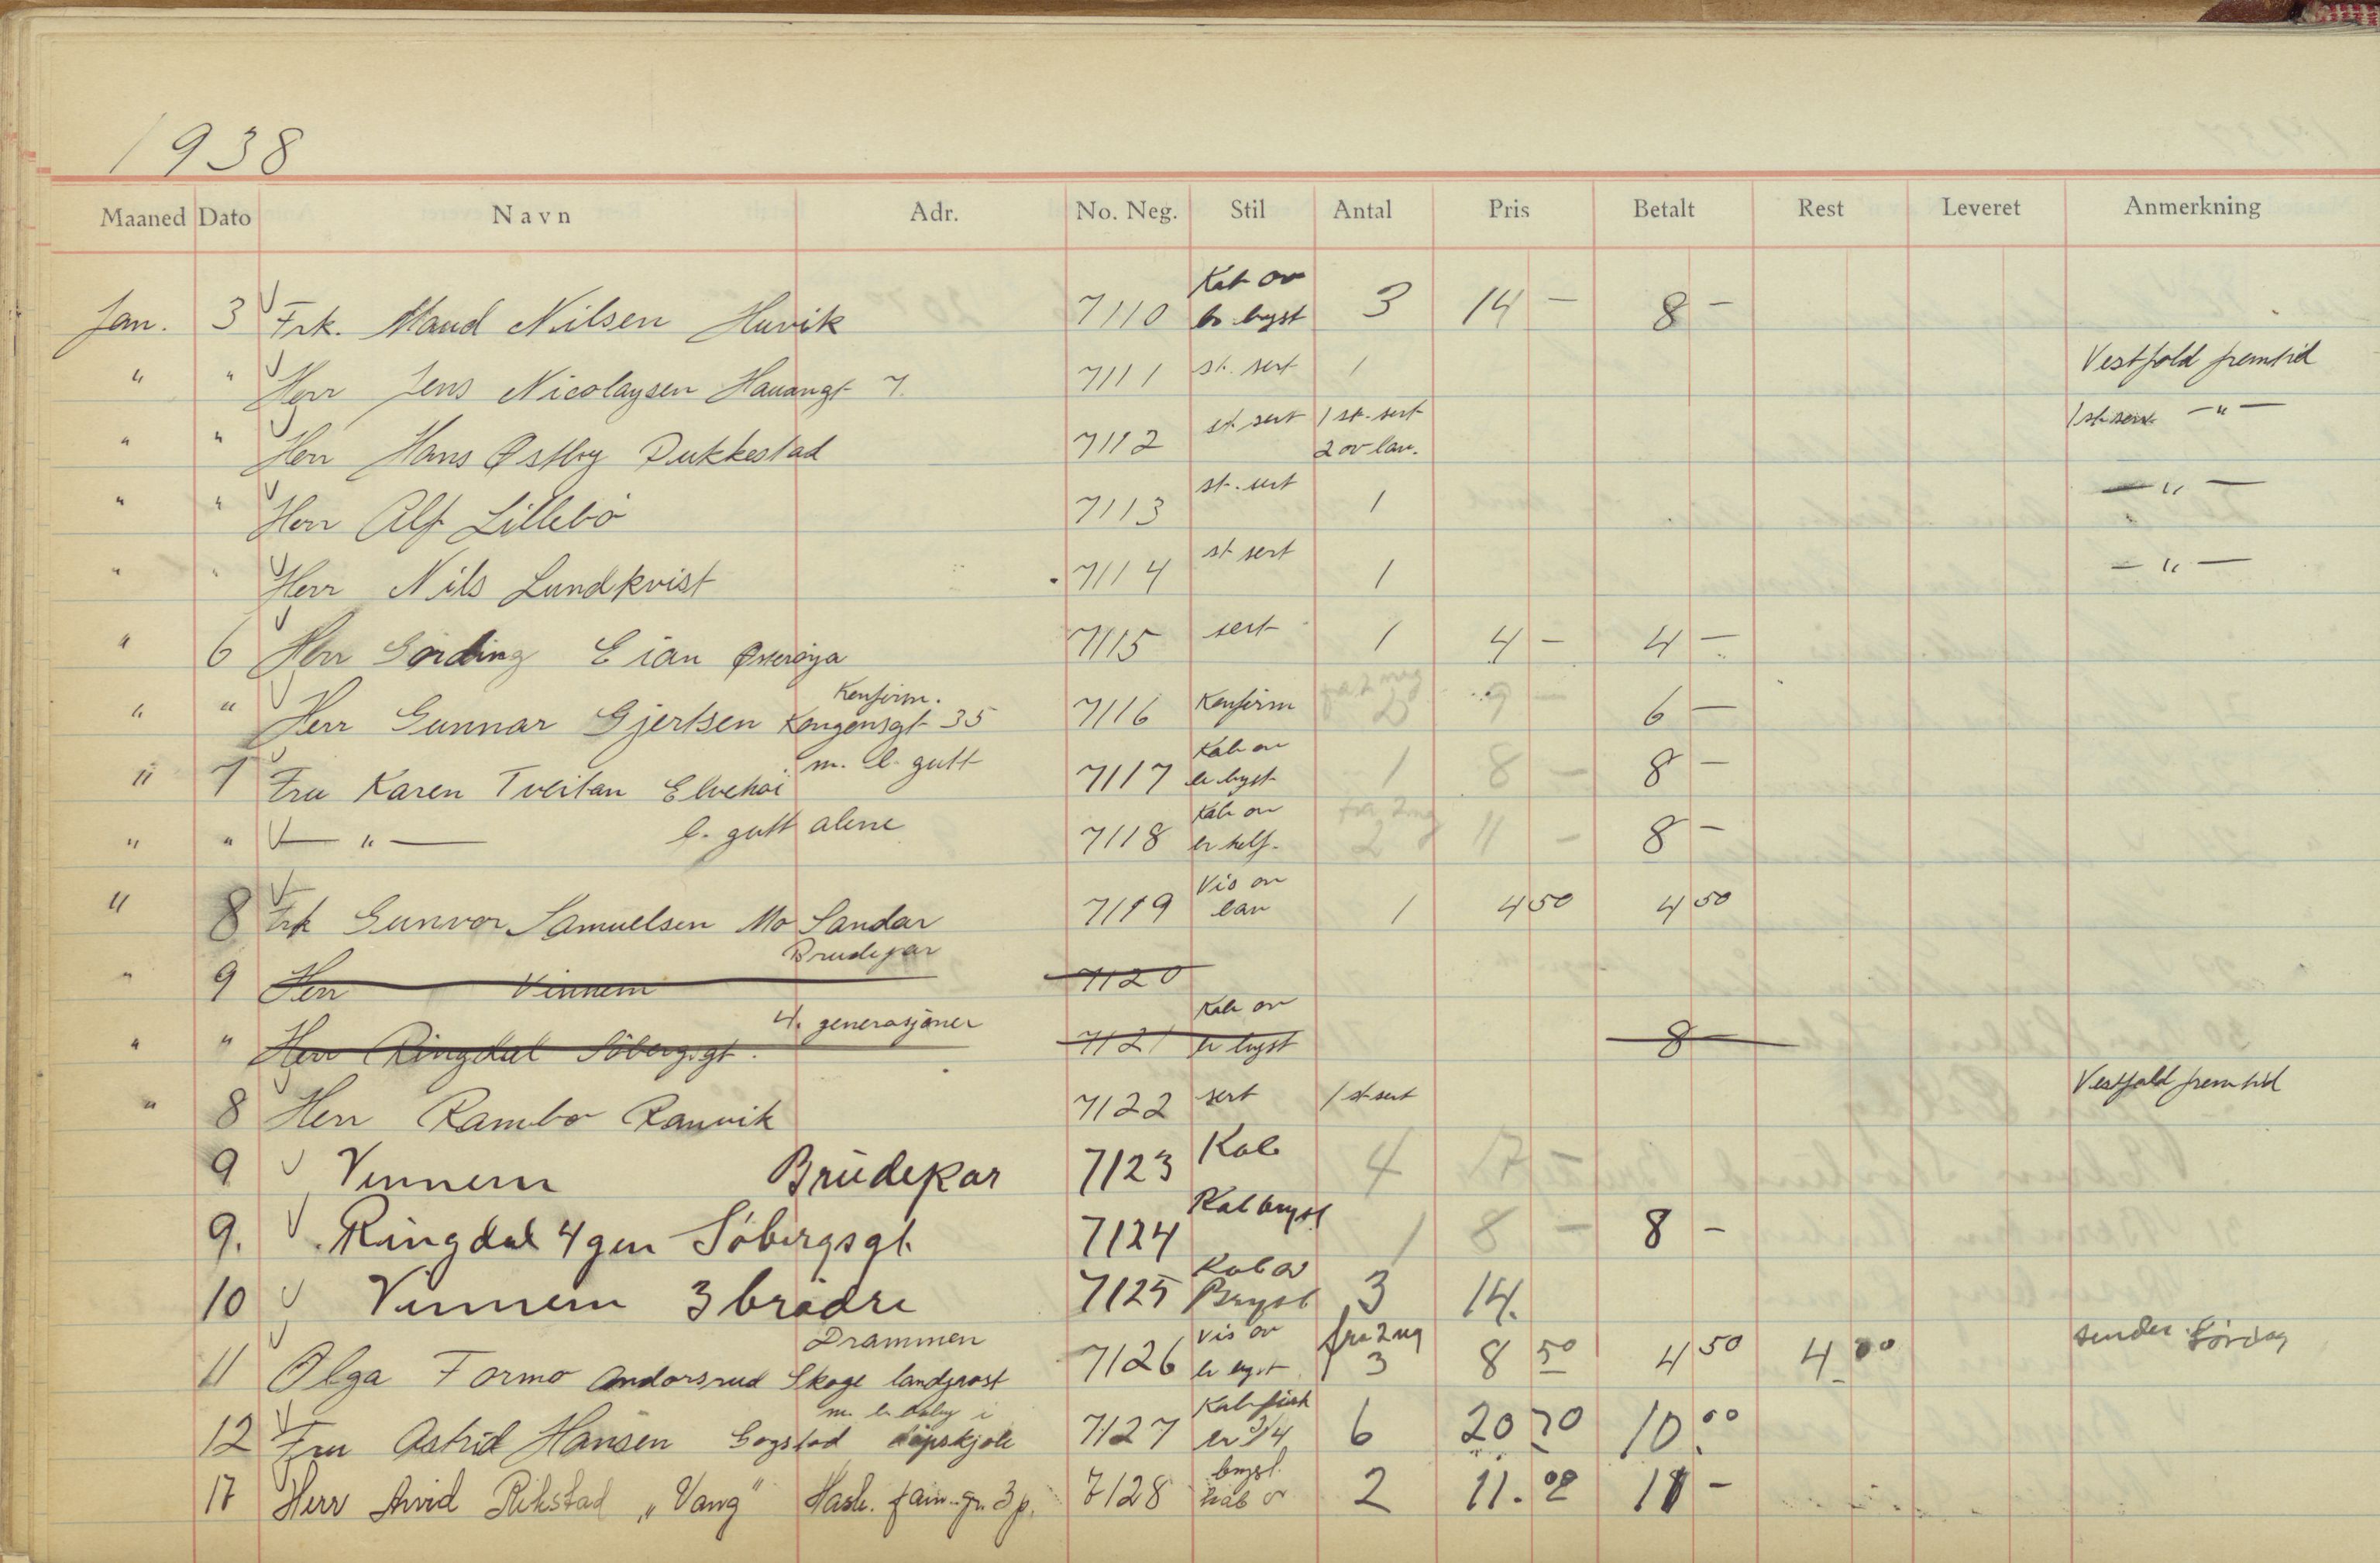 1938
Maaned Dato Navn Adr. No. Neg. Stil Antal Pris Betalt Rest Leveret Anmerkning
Jan. 3 Frk. Maud Nilsen Huvik 7110 Kab ov br. bryst 3 14 — 8 —
" " Herr Jens Nicolaysen Hauangt 7. 7111 st. sert 1 Vestfold fremtid
" " Herr Hans Østby Pukkestad 7112 st sert 1 st. sert 1 st sert — " —
2 ov lau.
" " Herr Alf Lillebö 7113 st. sert 1 — " —
" " Herr Nils Lundkvist 7114 st sert 1 — " —
" 6 Herr Eian Østeröya 7115 sert 1 4 — 4 —
Konfirm.
" " Herr Gunnar Gjertsen Kongensgt 35 7116 Konfirm fra 2 neg 2 9 — 6 —
m. l. gutt
" 7 Fru Karen Tveitan Elvehöi 7117 Kab ov er bryst 1 8 — 8 —
" " — " — l. gutt alene 7118 Kab ov er helf. fra 2 neg 2 11 — 8 —
" 8 Frk Gunvor Samuelsen Mo Sandar 7119 Vis ov lau 1 4 50 4 50
Brudepar
" 9 Herr Vinnem 7120
4. generasjoner
" " Herr Ringdal Söbergsgt. 7121 Kab ov er bryst 8 —
" 8 Herr Rambo Ranvik 7122 sert 1 st sert Vestfold fremtid
9 Vinnem Brudepar 7123 Kab 4 17 —
9. Ringdal 4 gen Söbergsgt. 7124 Kab bryst 1 8 — 8 —
10 Vinnem 3 brödre 7125 Kab ov Bryst 3 14.
Drammen
11 Olga Formo Andorsrud Skoge landpost 7126 Vis ov er bryst fra 2 neg 3 8 50 4 50 4 00 sendes Lördag
m. l. baby i
12 Fru Astrid Hansen Bogstad dåpskjole 7127 er 3/4 6 20 70 10 00
17 Herr Arvid Rikstad „Vang" Hasle. fam. gr. 3 p. 7128 bryst. kab ov 2 11. 00 11 —